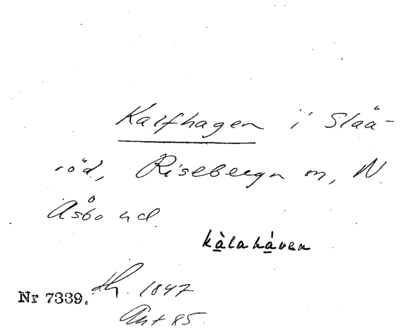 Kalfhagen i Slåå-
röd, Risebergа m, N.
Åsbo hd
kàlahávеn
Nr 7339. Lh. 1847
Ant 85.